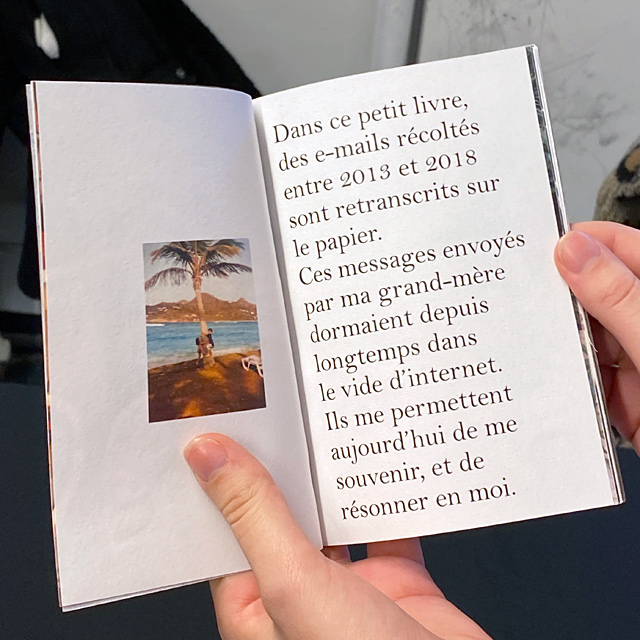 Dans ce petit livre,
des e-mails récoltés
entre 2013 et 2018
sont retranscrits sur
le papier.
Ces messages envoyés
par ma grand-mère
dormaient depuis
longtemps dans
le vide d'internet.
Ils me permettent
aujourd'hui de me
souvenir, et de
résonner en moi.